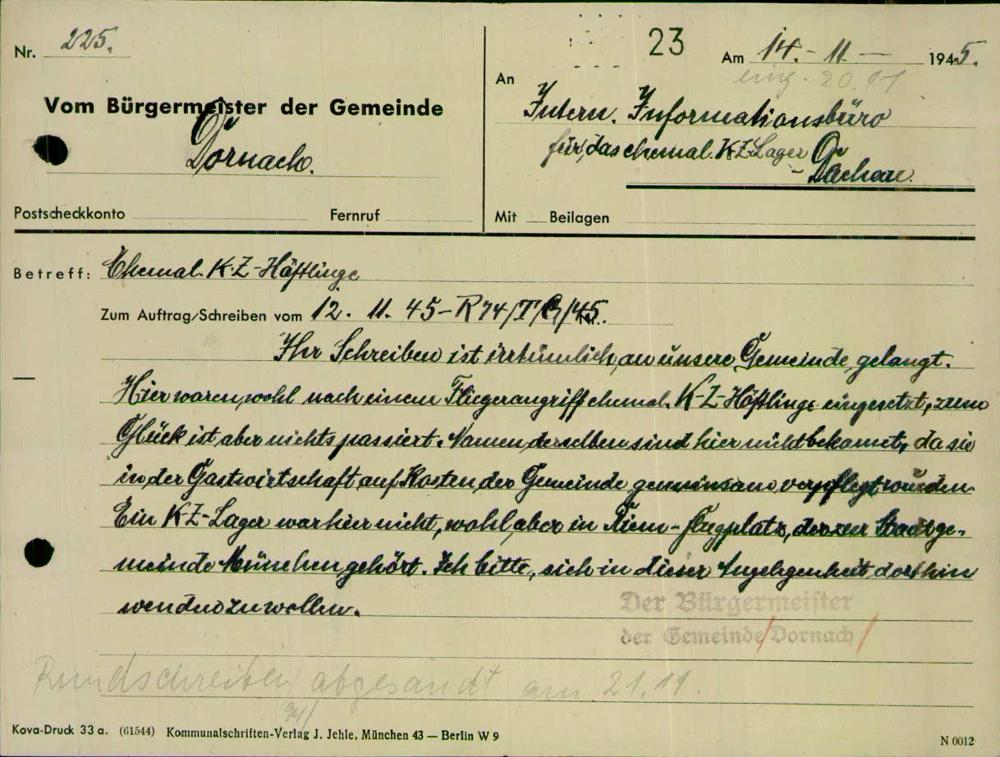 Nr. 225.
23
Am 14. - 11 - 1945.
eing. 20.11
Vom Bürgermeister der Gemeinde
Dornach.
An
Intern. Informationsbüro
für das ehemal. KZ-Lager
Dachau.
Postscheckkonto Fernruf
Mit Beilagen
Betreff: Ehemal. K-Z-Häftlinge
Zum Auftrag/Schreiben vom 12. 11. 45 - R74/T/G/45. Nr.
Ihr Schreiben ist irrtümlich an unsere Gemeinde gelangt.
Hier waren wohl nach einem Fliegerangriff ehemal. K-Z-Häftlinge eingesetzt, zum
Glück ist aber nichts passiert. Namen derselben sind hier nicht bekannt, da sie
in der Gastwirtschaft auf Kosten der Gemeinde gemeinsam verpflegt wurden.
Ein K-Z-Lager war hier nicht, wohl aber in Riem-Flugplatz, der zur Stadtge-
meinde München gehört. Ich bitte, sich in dieser Angelegenheit dorthin
wenden zu wollen.
Der Bürgermeister
der Gemeinde Dornach
Rundschreiben abgesandt am 21.11.
Kova-Druck 33 a. (61544) Kommunalschriften-Verlag J. Jehle, München 43 — Berlin W 9
N 0012